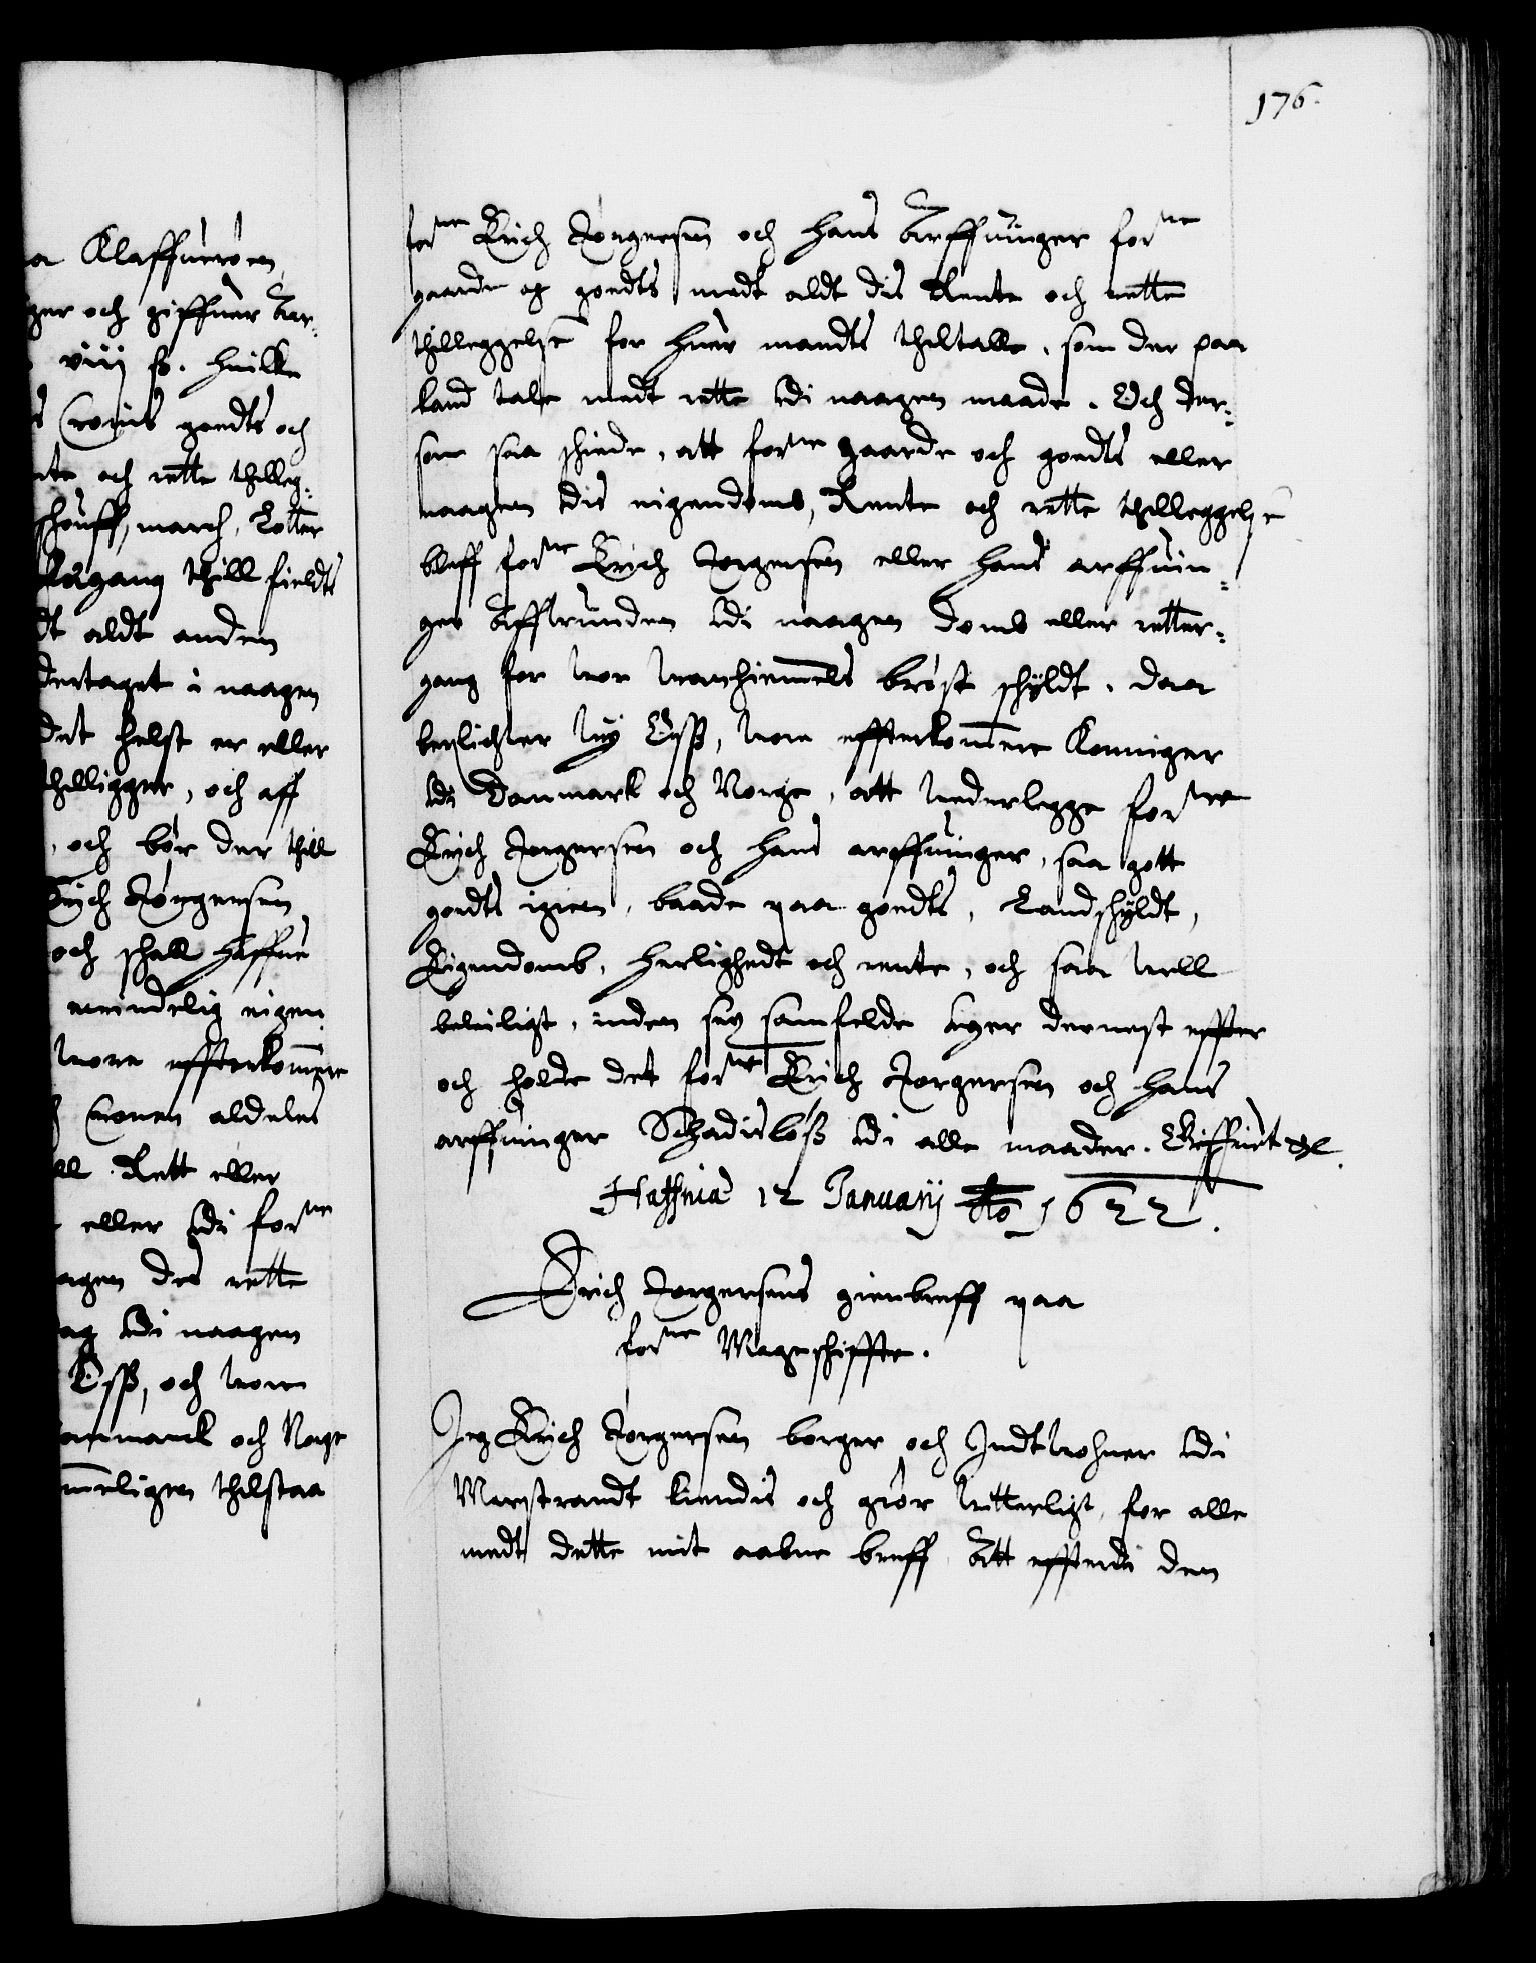 176.
a Klaffuerøen
ger och giffuer Aar¬
viij ß. huilke
s Cronis goedts och
nte och rette thilleg¬
schouff, march, Lotter
forgang thill fieldts
dt aldt andem
dertaget i naagen
det helst er eller
thilligger, och aff
, och bør der thill
Erich Jørgersen
och schall haffue
uindelig eigen¬
wore effterkommere
h Cronen aldeles
ll Rett eller
eller wdi forne
agen des rette
ag wdi naagen
Oss, och wore
Danmarck och Norge
meligen thilstaa
forne Erich Jørgersen och hans Arffuinger forne
gaarde og goedts medt aldt dis Rente och rette
thilleggelse for huer mandts thiltalle, som der paa
kand tale medt rette wdi naagen maade. Och der¬
som saa schiede, att forne gaarde och goedts eller
naagen dis eigendomb, Rente och rette thilleggelse
bleff forne Erich Jorgersen eller hans arffuin¬
ger Affwunden wdi naagen domb eller retter¬
gang for wor wanhiemmels brøst schyldt, daa
beplichter wy Oss, wore effterkommere Konninger
wdi Danmark och Norge, att wederlegge forne
Erich Jorgersen och hans arffuinger, saa gott
goedts igien, baade paa goedts, Landschyldt,
Eigendomb, herlighedt och rente, och saa well
beleiligt, inden sex samfelde uger dernest effter
och holde det forne Erich Jorgersen och hans
arffuinger Schadisløß wdi alle maader. Giffuet etc.
Haffniæ 12 Januarij Ao 1622.
Erich Jorgersens gienbreff paa
forne Mageschiffte.
Jeg Erich Jorgersen borger och Indtwohner wdi
Marstrandt kiendis och giør witterligt, for alle
medt dette mit aabne breff, Att effterdi den